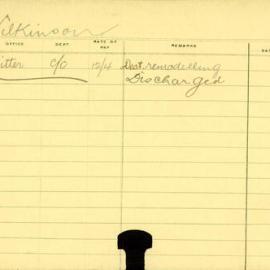 Wilkinson
OFFICE DEPT RATE OF PAY REMARKS
itter c/o 12/4 Dept. remodelling
Discharged